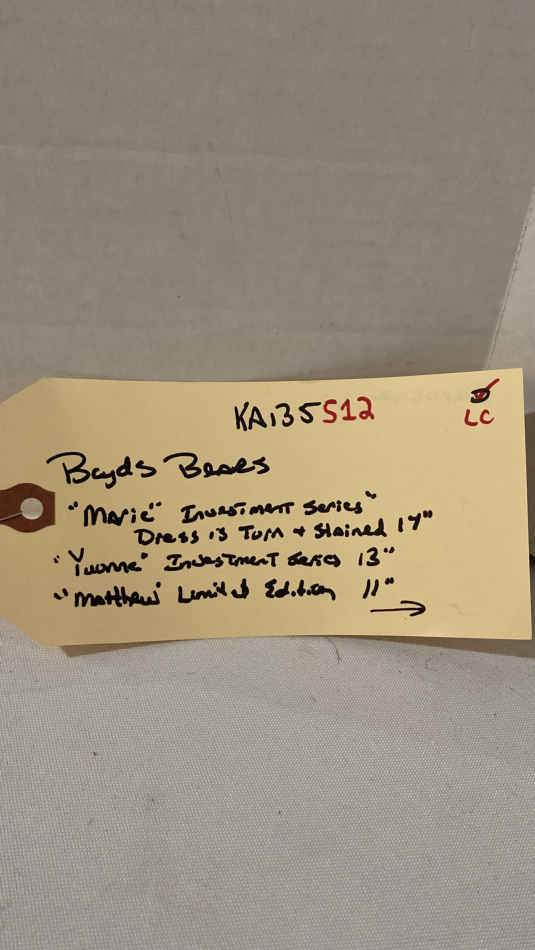 KA135S12
LC
Boyds Bears
"Marie" Investment Series"
Dress is Torn + Stained 14"
"Yvonne" Investment Series 13"
"Matthew" Limited Edition 11"
→